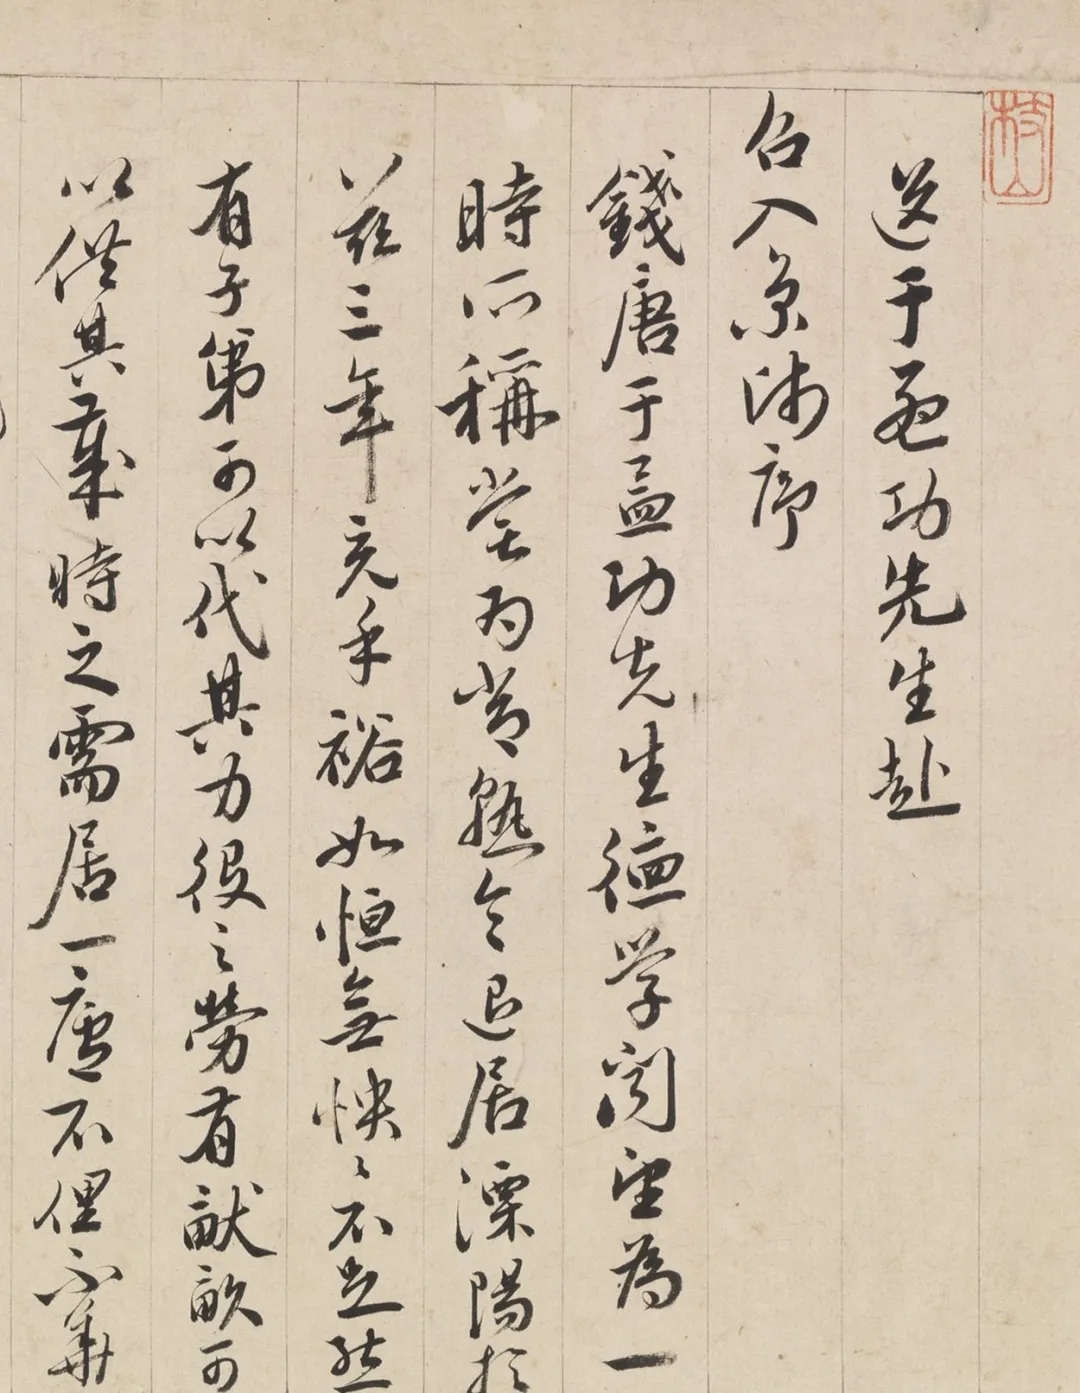 枝山
送于孟功先生赴
召入京師序
錢唐于孟功先生德学聞望為一
時所稱嘗为常熟令退居溧陽於
兹三年充乎裕如恒無怏〻不足然
有子弟可以代其力役之勞有畎畝可
以供其歲時之需居一廛不俚不華